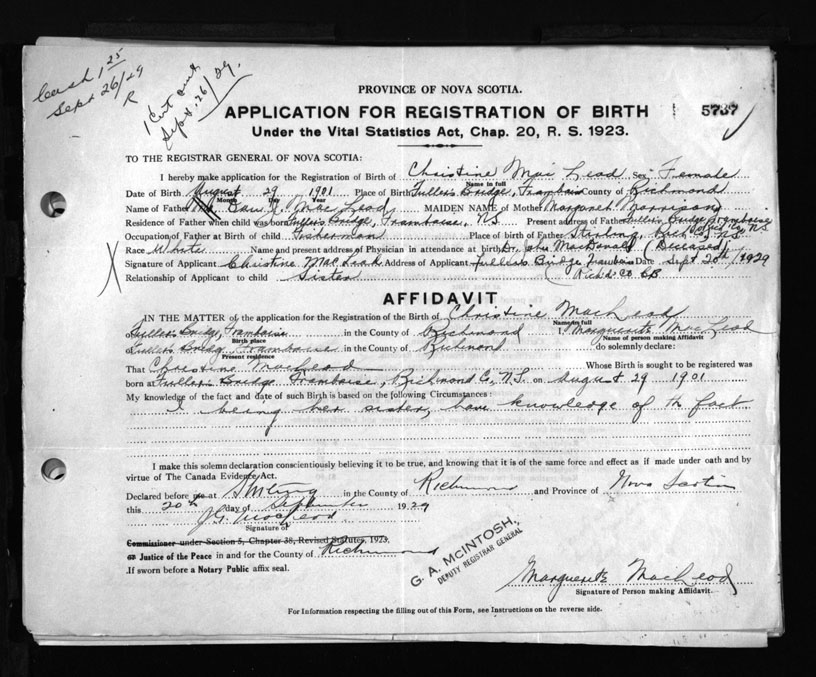 Cash 1 25
Sept 26/29
R
1 Cert
Sept. 26/29.
PROVINCE OF NOVA SCOTIA.
APPLICATION FOR REGISTRATION OF BIRTH 5737
Under the Vital Statistics Act, Chap. 20, R. S. 1923.
TO THE REGISTRAR GENERAL OF NOVA SCOTIA:
I hereby make application for the Registration of Birth of Christine MacLeod Sex Female
Name in full
Date of Birth August 29 1901 Place of Birth Fullers Bridge, Framboise County of Richmond
Month Day Year
Name of Father Dan A. MacLeod MAIDEN NAME of Mother Margaret Morrison
Residence of Father when child was born Fullers Bridge, Framboise, N.S. Present address of Father Fullers Bridge Framboise
Rich Co. N.S.
Occupation of Father at Birth of child Fisherman Place of birth of Father Stirling, Rich. Co N.S.
Race White Name and present address of Physician in attendance at birth Dr. John MacDonald (Deceased)
Signature of Applicant Christine MacLeod Address of Applicant Fullers Bridge Framboise Date Sept 20th/1929
Relationship of Applicant to child Sister Richd. Co CB
AFFIDAVIT
IN THE MATTER of the application for the Registration of the Birth of Christine MacLeod
Name in full
of Fullers Bridge, Framboise in the County of Richmond I, Marguerite MacLeod
Birth place
Name of person making Affidavit
of Fullers Bridge Framboise in the County of Richmond do solemnly declare:
Present residence
That Christine MacLeod Whose Birth is sought to be registered was
born at Fullers Bridge Framboise, Richmond Co, N.S. on August 29 1901
My knowledge of the fact and date of such Birth is based on the following Circumstances:
I being her sister, have knowledge of the fact
I make this solemn declaration conscientiously believing it to be true, and knowing that it is of the same force and effect as if made under oath and by
virtue of The Canada Evidence Act.
Declared before me at Stirling in the County of Richmond and Province of Nova Scotia
this 20th day of September 1929
J.G. MacLeod
Signature of
Commissioner under Section 5, Chapter 38, Revised Statutes, 1923.
or Justice of the Peace in and for the County of Richmond
If sworn before a Notary Public affix seal.
G. A. McINTOSH,
DEPUTY REGISTRAR GENERAL
Marguerite MacLeod
Signature of Person making Affidavit.
For Information respecting the filling out of this Form, see Instructions on the reverse side.